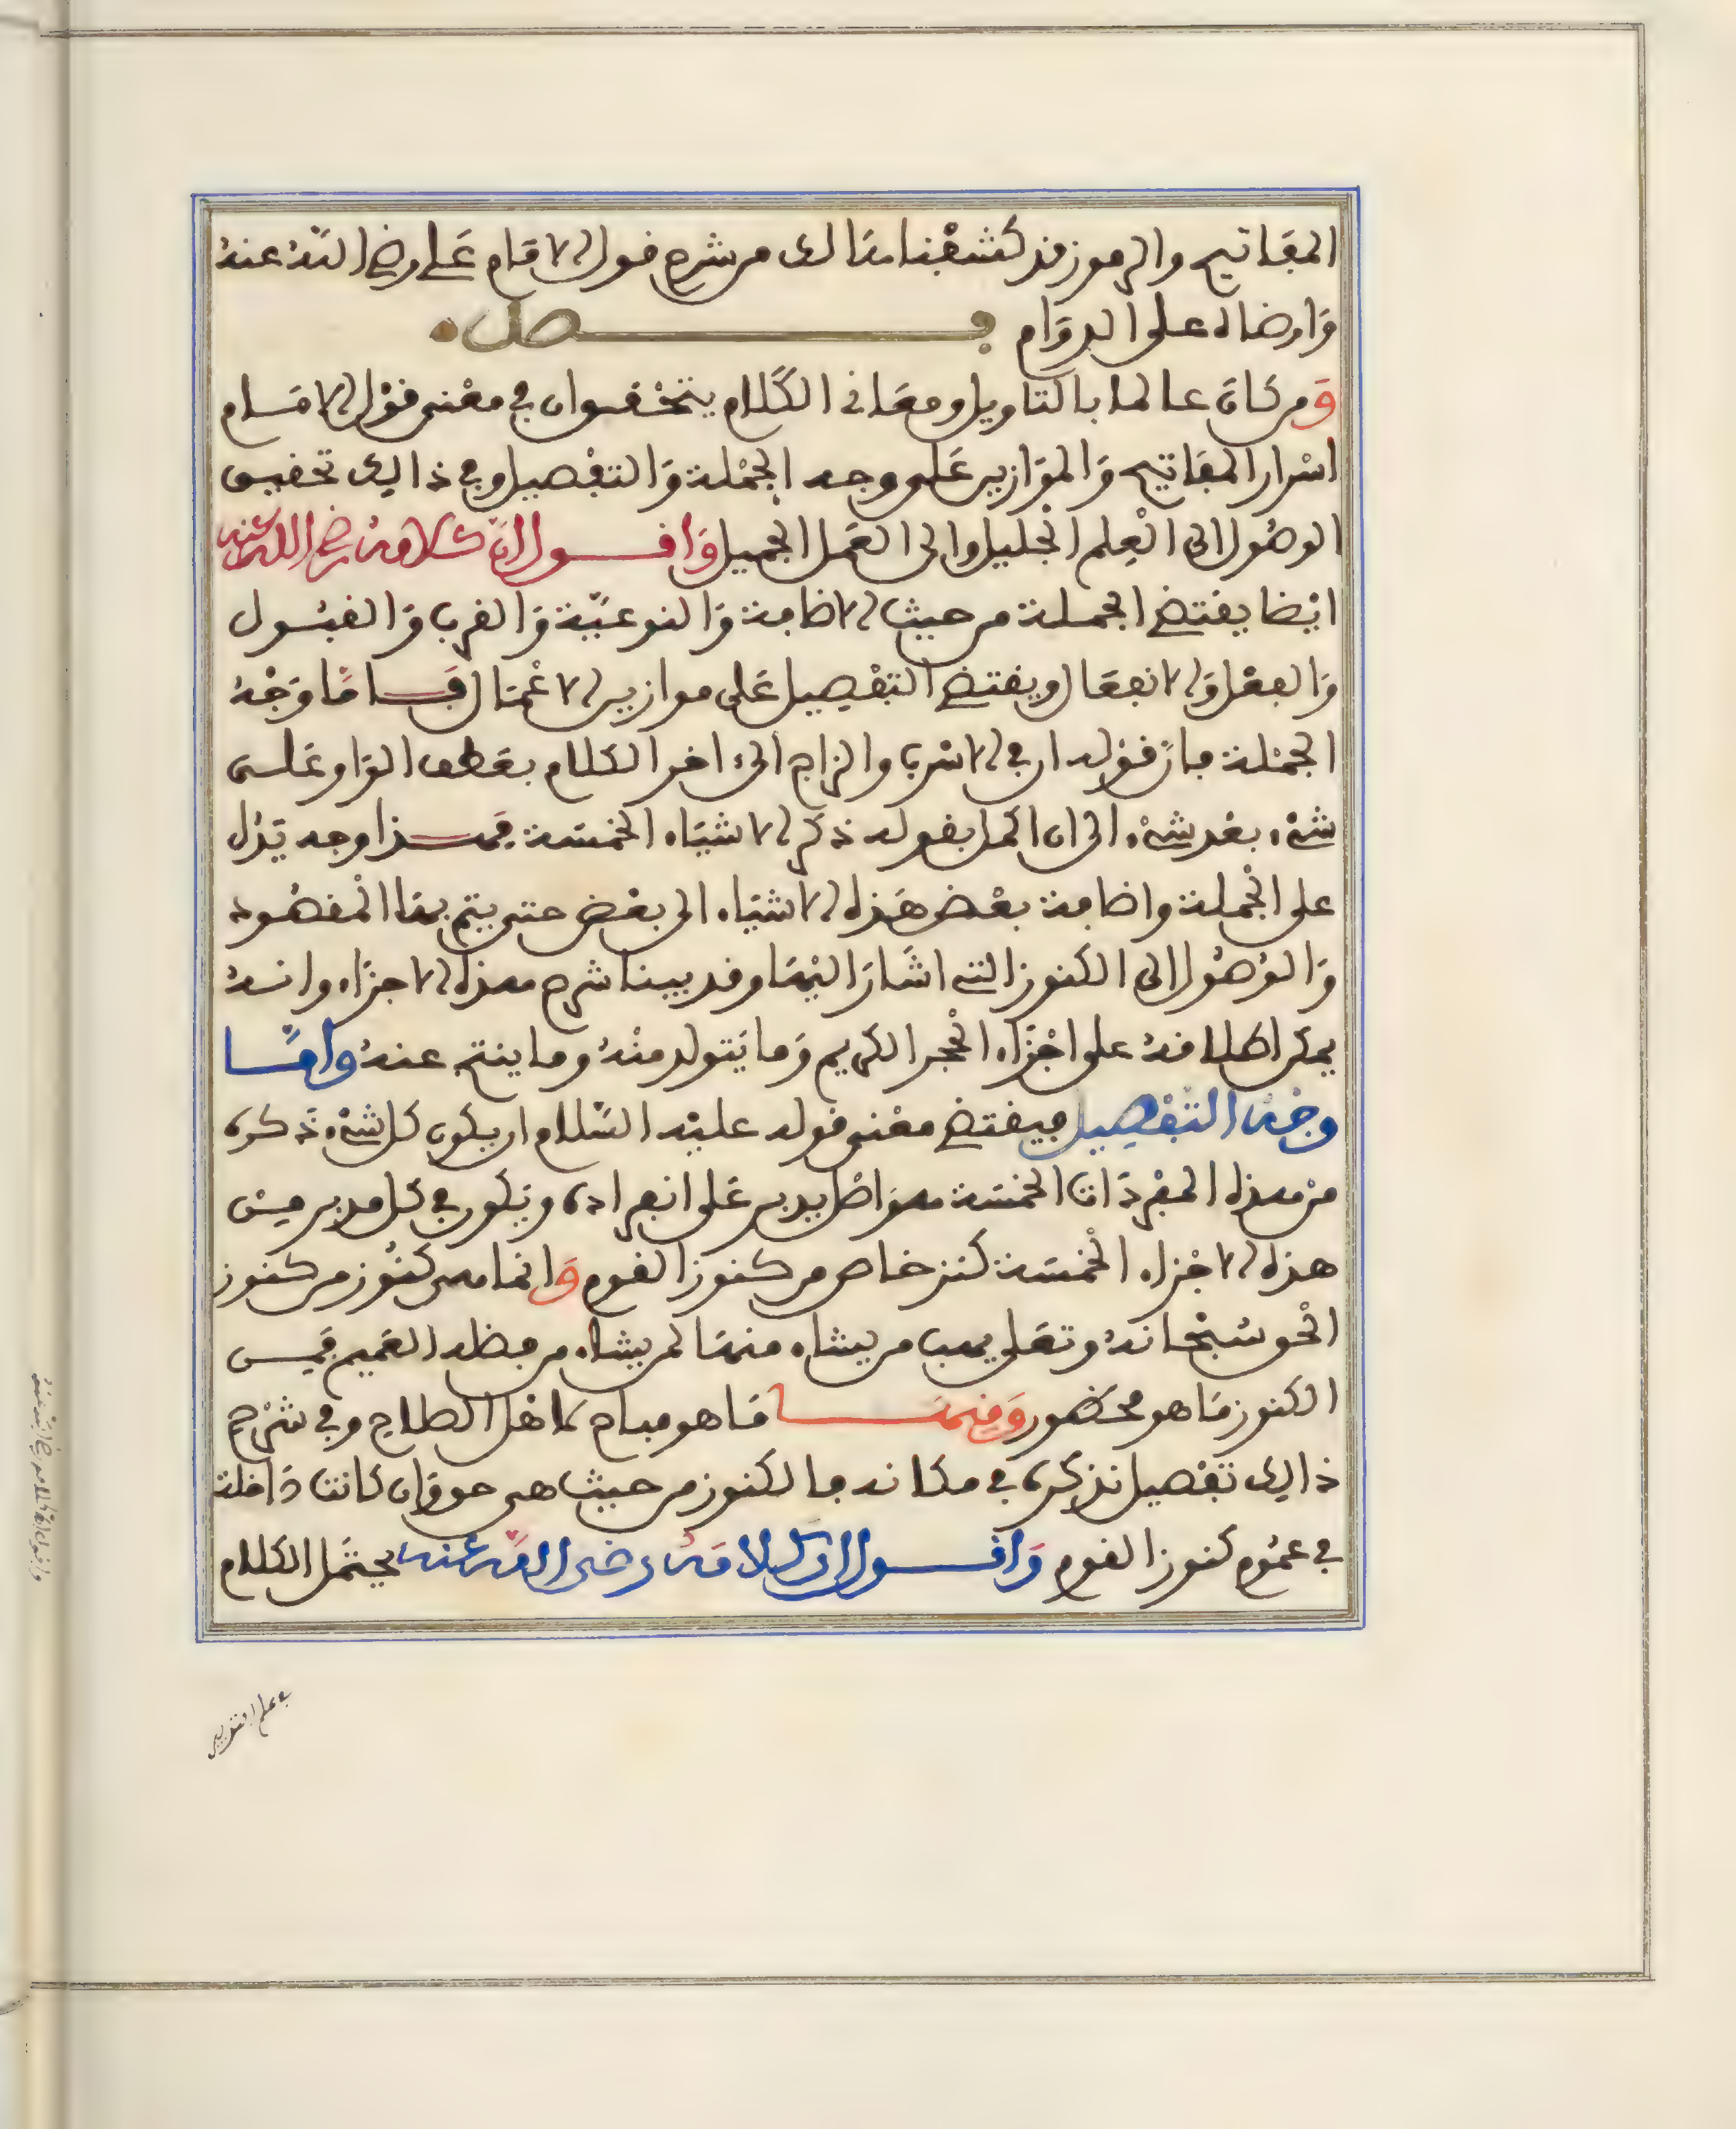 المفاتيح والرموز فقد كشفنا هنالك من شرح قول الامام علي رضي الله عنه
وارضاه على الدوام فصل
ومن كان عالما بالتاويل ومعاني الكلام يتحقق ان في معنى قول الامام
اسرار المفاتيح والموازين على وجه الجملة والتفصيل وفي ذالك تحقيق
الوصول الى العلم الجليل والى العمل الجميل واقول ان كلامه رضي الله عنه
ايضا يقتضي الجملة من حيث الاضافة والنوعية والقرب والقبول
والفعل والانفعال ويقتضي التفصيل على موازين الاعمال فاما وجه
الجملة فان قوله ان في الاسرب والزاج الى اخر الكلام بعطف الواو على
شيء بعد شيء الى ان اكمل بقوله ذكر الاشياء الخمسة فهذا وجه يدل
على الجملة واضافة بعض هذه الاشياء الى بعض حتى يتم بها المقصود
والوصول الى الكنوز التي اشار اليها وقد بينا شرح هذه الاجزاء وانه
يمكن اطلاقه على اجزاء الحجر الكريم وما يتولد منه وما ينتج عنه واما
وجه التفصيل فيقتضي معنى قوله عليه السلام ان يكون كل شيء ذكره
من هذه المفردات الخمسة هو اصل يدبر على انفراده ويكون في كل مدبر من
هذه الاجزاء الخمسة كنز خاص من كنوز القوم وانما هي كنوز من كنوز
الحق سبحانه وتعلى يهب من يشاء منها لمن يشاء من فضله العميم فمن
الكنوز ما هو محظور ومنها ما هو مباح لاهل الصلاح وفي شرح
ذالك تفصيل نذكره في مكانه فالكنوز من حيث هي حق وان كانت داخلة
في عموم كنوز القوم واقول ان كلامه رضي الله عنه يحتمل الكلام
في علم التدبير